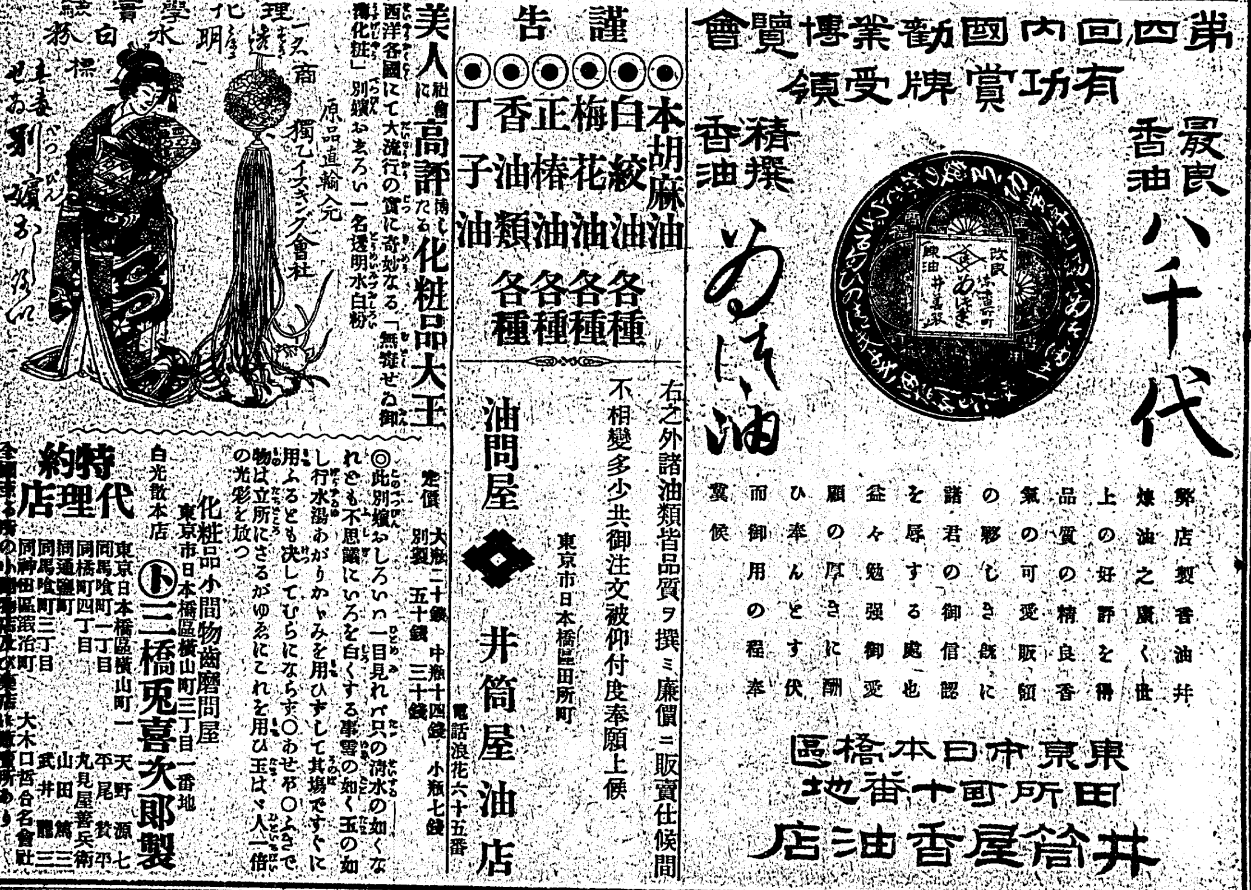 第四回内國勸業博覽會
有功賞牌受領
最良
香油
八千代
精撰
香油
ゐつゝ油
弊店製香油并
煉油之廣く世
上の好評を得
品質の精良香
氣の可愛販頓
の夥しき旣に
諸君の御信認
を辱する處也
益々勉强御愛
顧の厚きに酬
ひ奉んとす伏
而御用の程奉
冀候
東京市日本橋區
田所町十番地
井筒屋香油店
謹告
本胡麻油
白絞油各種
梅花油各種
正椿油各種
香油類各種
丁子油
右之外諸油類皆品質ヲ撰ミ廉價ニ販賣仕候間
不相變多少共御注文被仰付度奉願上候
東京市日本橋區田所町
油問屋
井筒屋油店
電話浪花六十五番
美人に社會高評博したる化粧品大王
西洋各國にて大流行の實に奇妙なる「無毒せゐ御
化粧」別嬪おしろい一名透明水白粉
原品直輸入元
獨乙イスキング會社
別嬪おしろい
定價 大瓶二十錢 中瓶十四錢 小瓶七錢
別製 五十錢 三十錢
◎此別嬪おしろいハ一目見れバ只の清水の如くな
れども不思議にいろを白くする事雪の如く玉の如
し行水湯あがりかゞみを用ひずして其塲ですぐに
用ふるとも决してむらにならず〇あせや〇ふきで
物は立所にさるがゆゑにこれを用ひ玉はゞ人一倍
の光彩を放つ
化粧品小間物齒磨問屋
東京市日本橋區橫山町三丁目一番地
白光散本店
三橋兎喜次郎製
特約代理店
東京日本橋區橫山町一 天野源七
同馬喰町一丁目 平尾贊平
同橘町四丁目 丸見屋善兵衛
同通鹽町 山田篤三
同馬喰町三丁目 武井龍三
同神田區鍛冶町 大木口哲合名會社